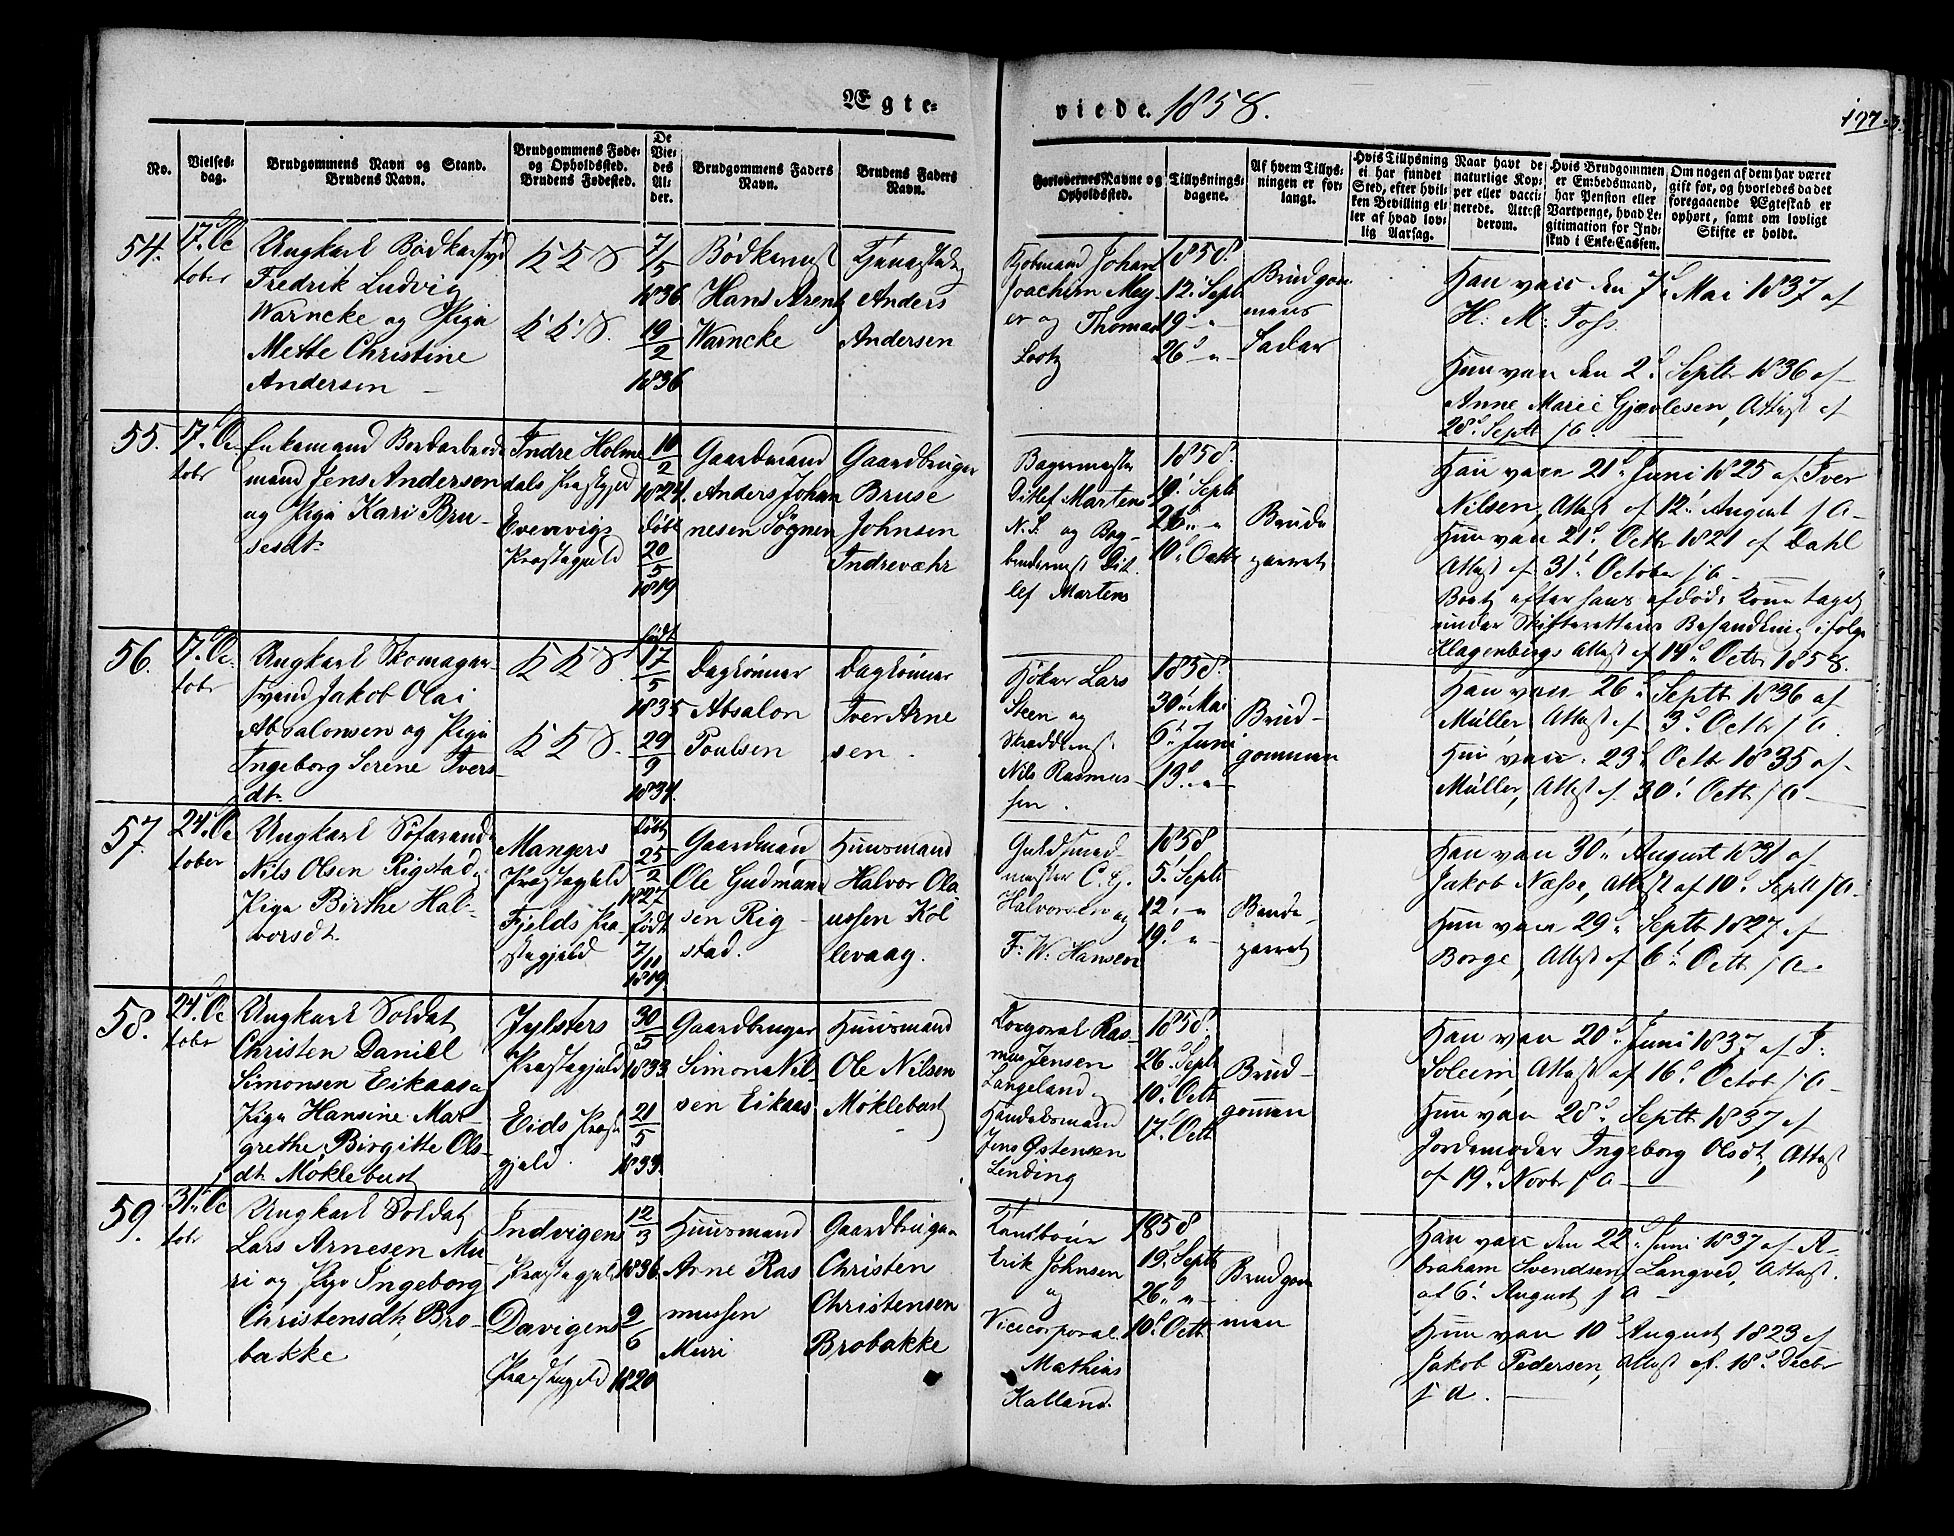 Ægte-
viede. 1858.
197.
No.
Vielses-
dag.
Brudgommens Navn og Stand.
Brudens Navn.
Brudgommens Føde-
og Opholdssted.
Brudens Fødested.
De
Vie-
des
Al-
der.
Brudgommens Faders
Navn.
Brudens Faders
Navn.
Forlovernes Navne og
Opholdssted.
Tillysnings-
dagene.
Af hvem Tillys-
ningen er for-
langt.
Hvis Tillysning
ei har fundet
Sted, efter hvil-
ken Bevilling el-
ler af hvad lov-
lig Aarsag.
Naar havt de
naturlige Kop-
per eller vacci-
nerede. Attest
derom.
Hvis Brudgommen
er Embedsmand,
har Pension eller
Vartpenge, hvad Le-
gitimation for Ind-
skud i Enke-Cassen.
Om nogen af dem har været
gift før, og hvorledes da det
foregaaende Ægteskab er
ophørt, samt om lovligt
Skifte er holdt.
54.
17. Oc
tober
Ungkarl Bødkersvd
Fredrik Ludvig
Warncke og Pige
Mette Christine
Andersen
K K S
K K S.
7/5
1836
19/2
1836
Bødkermst
Hans Arent
Warncke
Anders
Andersen
Kjøbmand Johan
Joachim Mey
er og Thomas
Lootz
1858.
12. Sept
19. "
26 "
Brudgom
mens
Fader
Han vacc den 7d Mai 1837 af
H: M: Foss.
Hun vacc den 2d Septbr 1836 af
Anne Marie Gjertsen, Attest af
28d Septbr s. a.
55.
17. Oc
tobr
Enkemand
mand Jens Andersen
og Pige Kari Bru-
sesdt
Indre Holme
dals Præstgjeld
Evenvigs
Præstegjeld
10/2
1824.
døbt
20/5
1819
Gaardmand
Anders Johan
nesen Søgnen
Gaardbruger
Bruse
Johnsen
Indrevæhr
Bagermester
Ditlef Martens
N. S. og Bog-
bindermst Dit
lef Martens
1858.
19. Sept
26. "
10. Octbr
Brude
parret
Han vacc 21d Juni 1825 af Iver
Nilsen, Attest af 12. August s. a.
Hun vacc 21d Octbr 1821 af Dahl
Attest af 31. October s. a.
Boet efter hans afdøde Kone taget
under Skifterettens Behandling ifølge
Klagenbergs Attest af 14d Octbr 1858.
56.
17. Oc
tobr
Ungkarl Skomager
svend Jakob Olai
Absalonsen og Pige
Ingeborg Serene Ivers-
dtr
K K S.
K K S.
født
17/5
1835
29/9
1834.
Daglønner
Absalon
Poulsen
Daglønner
Iver Arne
sen
Høker Lars
Steen og
Skræddermst.
Nils Rasmus-
sen.
1858.
30. Mai
6. Juni
13. "
Brud-
gommen
Han vacc 26. Septbr 1836 af
Müller, Attest af 3d Octbr s. a.
Hun vacc. 23d Octbr 1835 af
Müller, Attest af 30. Octbr s. a.
57.
24. Oc
tober
Ungkarl Søfarende
Nils Olsen Rigstad og
Pige Birthe Hal-
vorsdt.
Mangers
Præstegjeld
Fjelds Præ-
stegjeld
født
25/2
1827
født
7/11
1819.
Gaardman
Ole Gudmund
sen Rig-
stad.
Huusmand
Halvor Ola
ussen Kol
levaag.
Guldsmed-
mester C. G.
Halvorsen og
F: W: Hansen
1858
5. Septbr
12. "
19. "
Brude-
parret
Han vacc 30. August 1831 af
Jakob Næsse, Attest af 10d Septbr s. a.
Hun vacc 29. Septbr 1827 af
Borge, Attest af 6. Octbr s. a.
58.
24. Oc
tobr
Ungkarl Soldat
Christen Daniel
Simonsen Eikaas og
Pige Hansine Mar-
grethe Birgitte Ols-
dt. Möklebust
Jølsters
Præstegjeld
Eids Præste
gjeld.
30/5
1833.
21/5
1833.
Gaardbruger
Simon Nil-
sen Eikaas
Huusmand
Ole Nilsen
Möklebust
Corporal Ras-
mus Jensen
Langeland og
Handelsmand
Jens Østensen
Lending
1858.
26. Septb
10. Octb
17. Octb
Brud-
gomen
Han vacc 20. Juni 1837 af I:
Soleim, Attest af 16d Octob s. a.
Hun vacc 28d Septbr 1837 af
Jordemoder Ingeborg Olsdt, Attest
af 19. Novbr s. a.
59.
31. Oc
tobr
Ungkarl Soldat
Lars Arnesen Mu
ri og Pige Ingeborg
Christensdtr Bro-
bakke
Indvigens
Præstegjeld
Davigens
Præstegjeld
12/3
1836.
2/6
1820
Huusmand
Arne Ras
mussen
Muri
Gaardbruger
Christen
Christensen
Brobakke
Erik Johnsen
og
Vicecorporal.
Mathias
Halland.
1858
19. Septb
26. "
10. Octbr
Brudgom
men
Han vacc den 22. Juni 1837 af A-
braham Svendsen Langved, Attest.
af 6. August s a
Hun vacc 10 August 1823 af
Jakob Pedersen, Attest af. 18d Decbr
s. a.